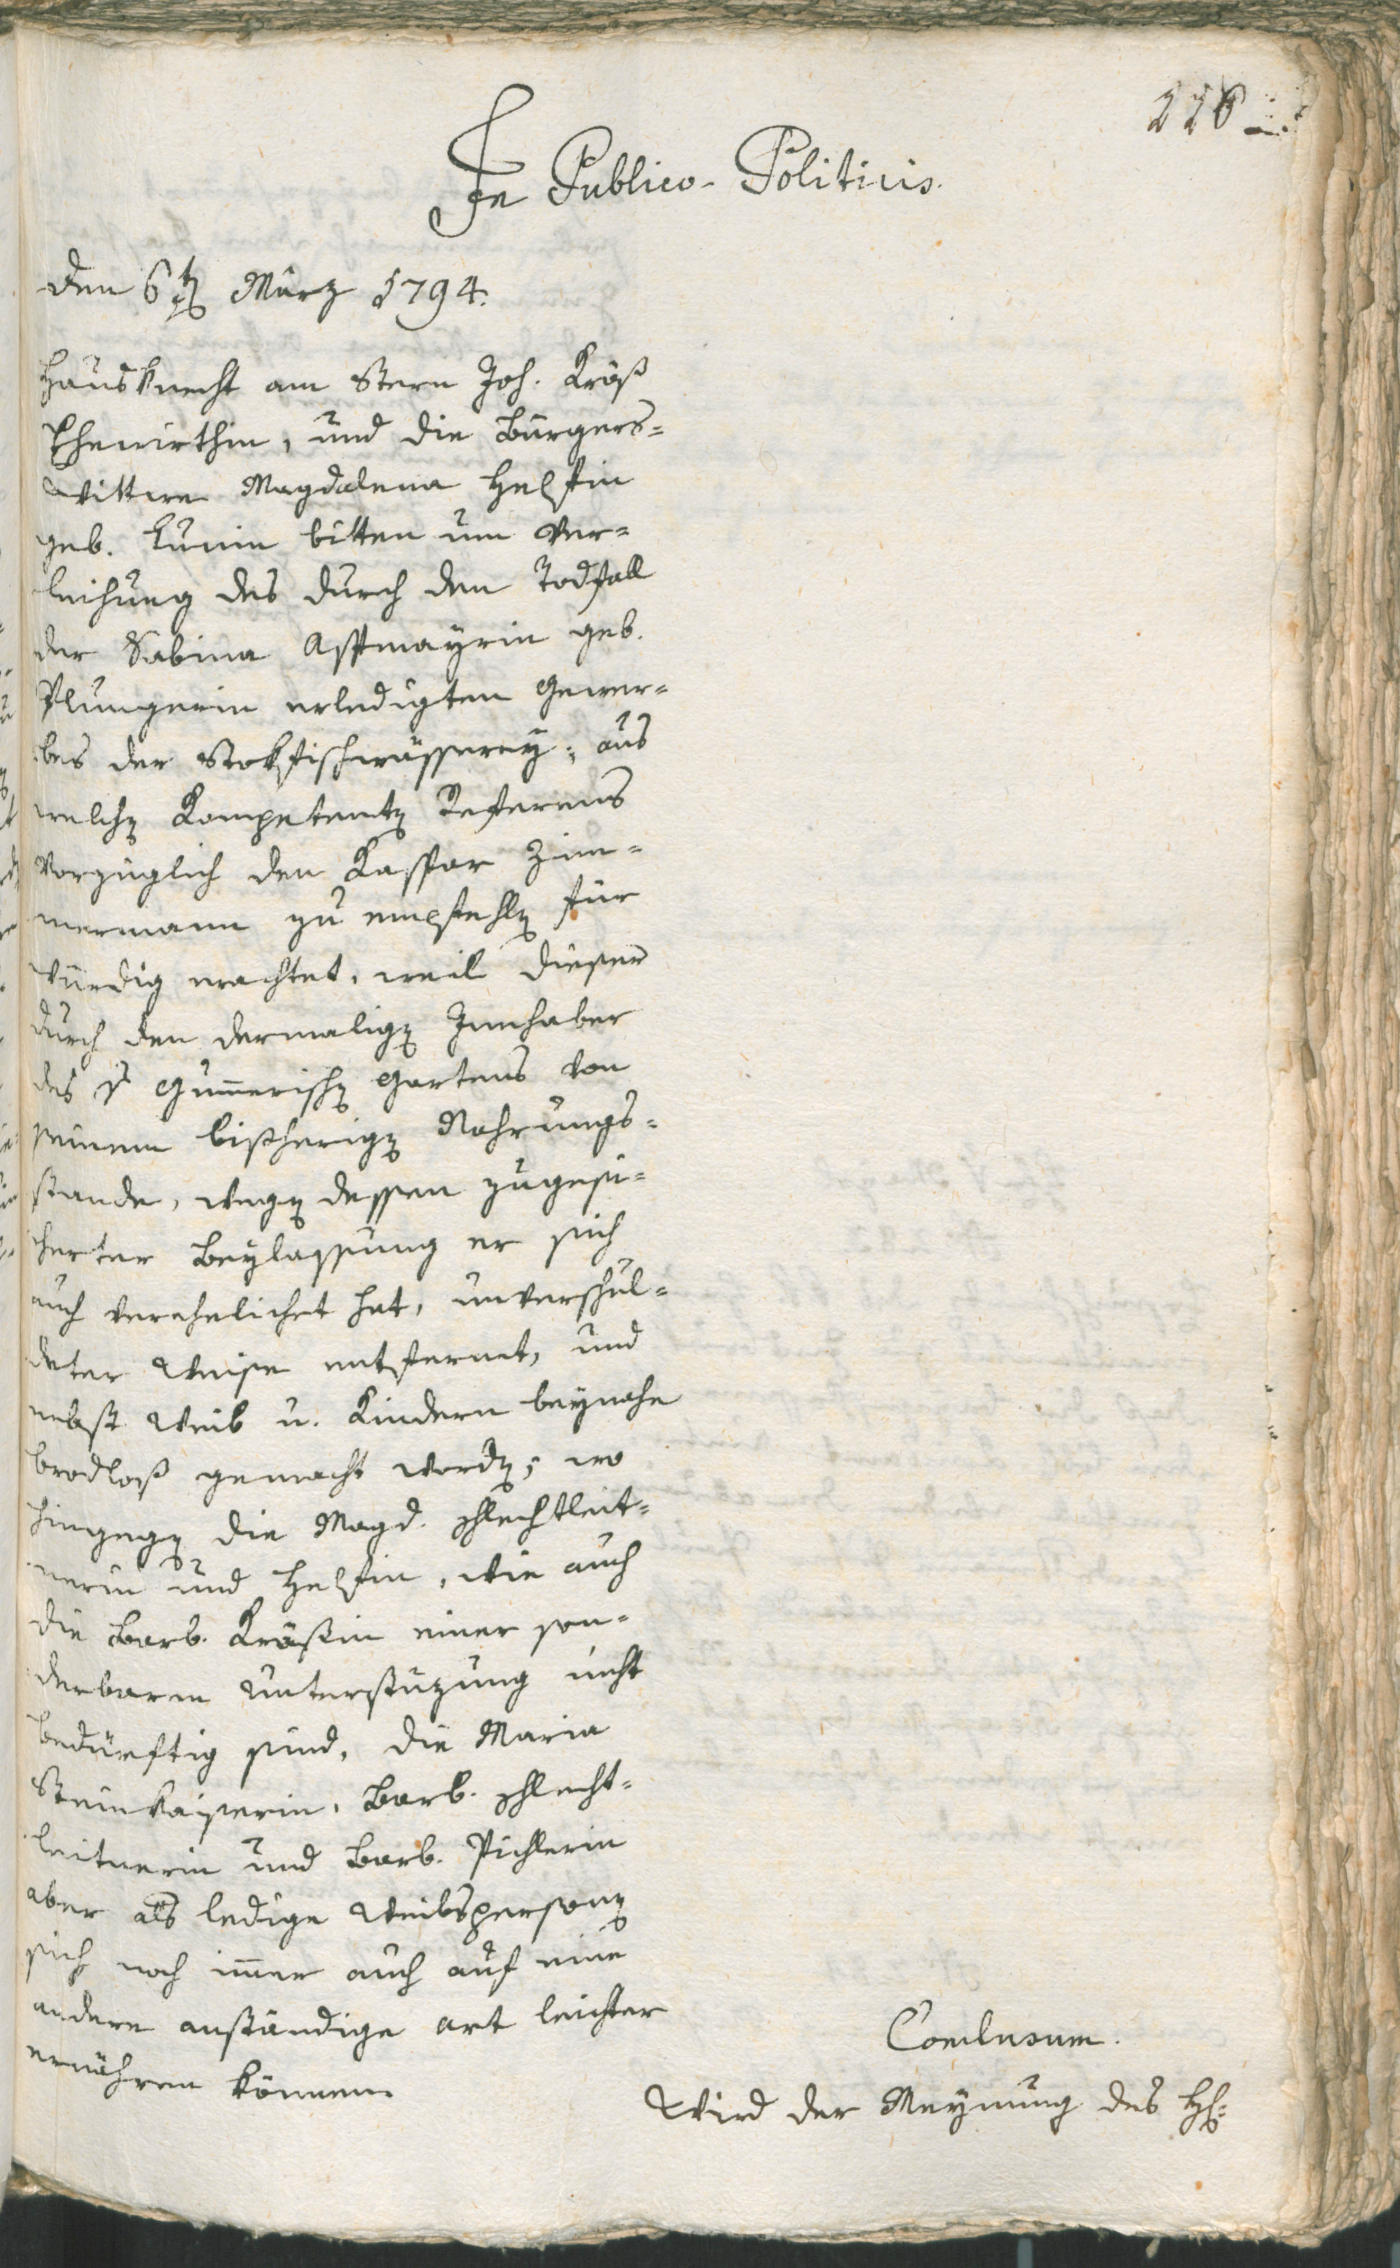 226
In Publico-Politicis.
den 6ten März 1794.
Hausknecht am Stern Joh. Kröß
Ehewirthin, und die Burgers=
Wittwe Magdalena Helffin
geb. Lunin bitten um Ver=
leihung des durch den Todfall
der Sabina Assmayrin geb.
Plungerin erledigten Gewer=
bes der Stokfischwässerey; aus
welchen Kompetenten Referens
vorzüglich den Kaspar Zim=
mermann zu empfehlen für
würdig erachtet, weil dieser
durch den dermaligen Innhaber
des v Gummerischen Gartens von
seinem bißherigen Nahrungs=
stande, wegen dessen zugesi=
cherter Beylassung er sich
auch verehelichet hat, unverschul=
deter Weise entfernet, und
nebst Weib u. Kindern beynahe
brodloß gemacht worden; wo
hingegen die Magd. Schlechtleit=
nerin und Helffin, wie auch
die Barb. Krößin einer son=
derbaren Unterstüzung nicht
bedürftig sind, die Maria
Steinkaiserin, Barb. Schlecht=
leitnerin und Barb. Pichlerin
aber als ledige Weibspersonen
sich noch immer auch auf eine
andere anständige Art leichter
ernähren können.
Conclusum.
Wird der Meynung des H: